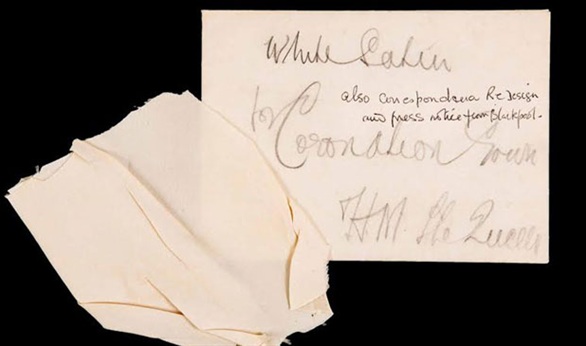 White Satin
also correspondence Re Design
and press notice from Blackpool.
for
Coronation Gown
H.M. The Queen